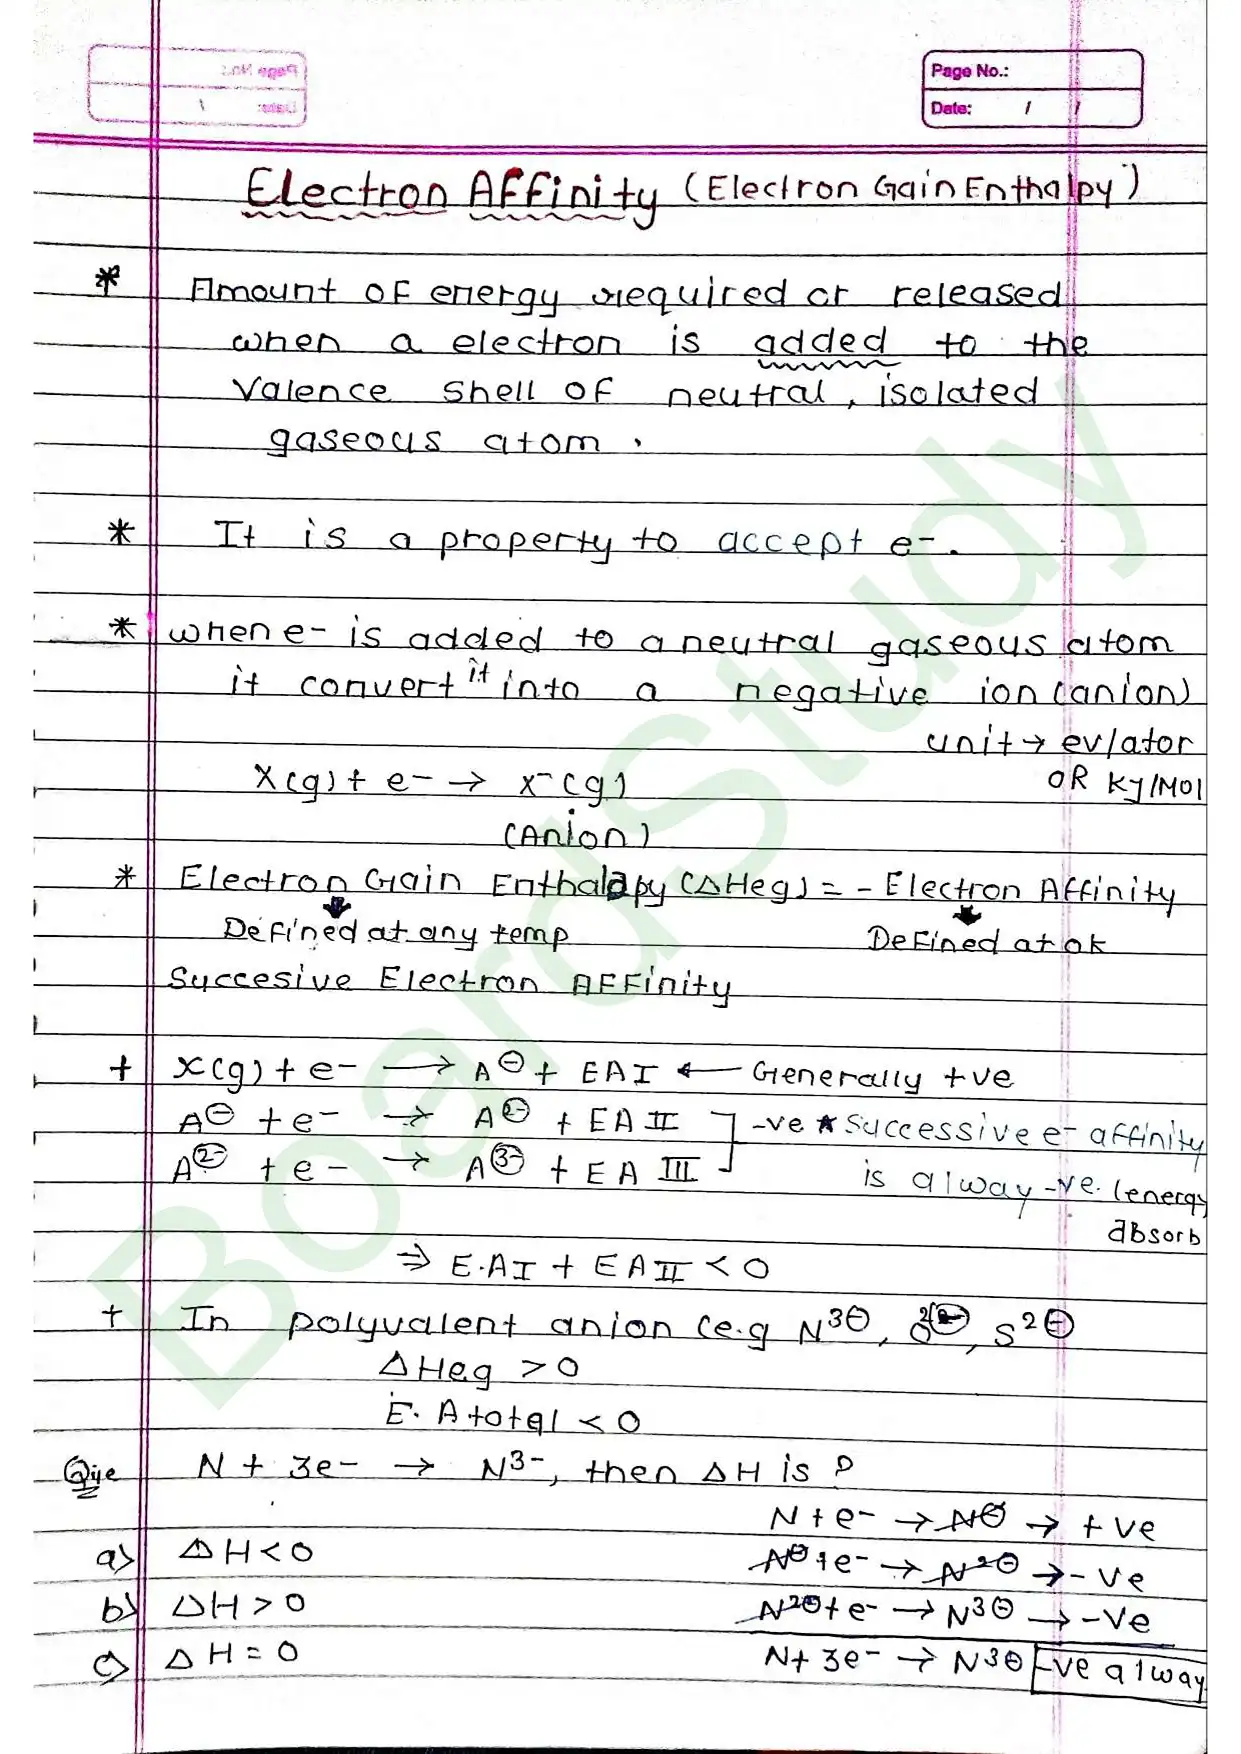 Page No.:
Date: / /
Electron Affinity (Electron Gain Enthalpy)
* Amount of energy required or released
when a electron is added to the
Valence shell of neutral, isolated
gaseous atom.
* It is a property to accept e-.
* when e- is added to a neutral gaseous atom
it convert it into a negative ion (anion)
unit → ev/ator
X(g) + e- → x-(g) OR KJ/Mol
(Anion)
* Electron Gain Enthalpy (ΔHeg) = - Electron Affinity
Defined at any temp Defined at ok
Succesive Electron Affinity
+ X(g) + e- → A⊖ + EAI ← Generally +ve
A⊖ + e- → A2- + EA II ] -ve * Successive e- affinity
A2- + e- → A3- + EA III is alway -ve. (energy
absorb
⇒ E.AI + EAII < 0
+ In polyvalent anion (e.g N3⊖, O2⊖, S2⊖
ΔHeg > 0
E. Atotal < 0
Que N + 3e- → N3-, then ΔH is ?
N + e- → N⊖ → +ve
a) ΔH < 0 N⊖ + e- → N2⊖ → -ve
b) ΔH > 0 N2⊖ + e- → N3⊖ → -ve
c) ΔH = 0 N + 3e- → N3⊖ -ve alway
BoardStudy